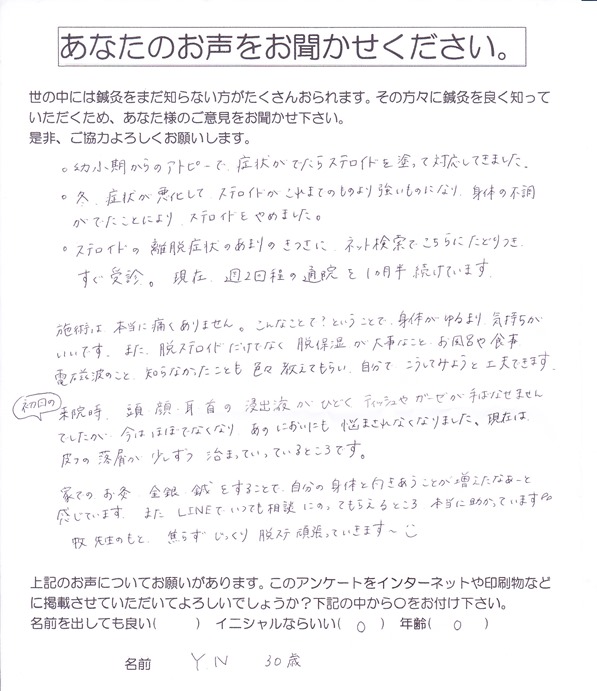 あなたのお声をお聞かせください。
世の中には鍼灸をまだ知らない方がたくさんおられます。その方々に鍼灸を良く知って
いただくため、あなた様のご意見をお聞かせ下さい。
是非、ご協力よろしくお願いします。
。幼少期からのアトピーで、症状がでたらステロイドを塗って対応してきました。
。冬、症状が悪化して、ステロイドがこれまでのものより強いものになり、身体の不調
がでたことにより、ステロイドをやめました。
。ステロイドの離脱症状のあまりのきつさに、ネット検索でこちらにたどりつき、
すぐ受診。現在、週2回程の通院を1ヶ月半続けています。
施術は本当に痛くありません。こんなことで?ということで、身体がゆるまり、気持ちが
いいです。また、脱ステロイドだけでなく脱保湿が大事なこと、お風呂や食事
電磁波のこと、知らなかったことも色々教えてもらい、自分でこうしてみようと工夫できます。
初回の
来院時、頭・顔・耳・首の浸出液がひどくティッシュやガーゼが手ばなせません
でしたが、今はほぼでなくなり、あのにおいにも悩まされなくなりました。現在は、
皮フの落屑が少しずつ治まっていっているところです。
家でのお灸、金銀鍼をすることで、自分の身体と向きあうことが増えたなあーと
感じています。また、LINEでいつでも相談にのってもらえるところ、本当に助かっています
牧先生のもと、焦らずじっくり脱ステ頑張っていきます〜
上記のお声についてお願いがあります。このアンケートをインターネットや印刷物など
に掲載させていただいてよろしいでしょうか?下記の中から〇をお付け下さい。
名前を出しても良い( ) イニシャルならいい( 〇 ) 年齢( 〇 )
名前 YN 30歳